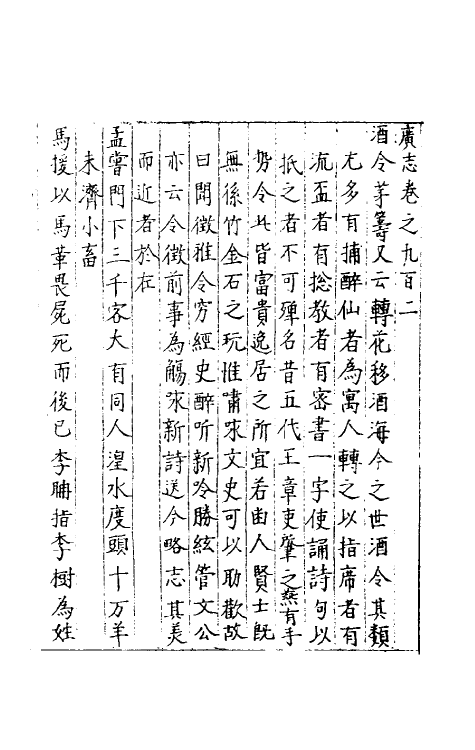 廣志卷之九百二
酒令茅籌又云轉花移酒海今之世酒令其類
尤多有捕醉仙者為寓人轉之以指席者有
流盃者有捻教者有密書一字使誦詩句以
抵之者不可殫名昔五代王章吏肇之燕有手
勢令此皆富貴逸居之所宜若幽人賢士既
無係竹金石之玩惟嘯咏文史可以助歡故
曰閒徵雅令窮經史醉听新吟勝絃管文公
亦云令徵前事為觴咏新詩送今略志其美
而近者於在
孟嘗門下三千客大有同人湟水度頭十万羊
未濟小畜
馬援以馬革畏屍死而後已李耼指李樹為姓